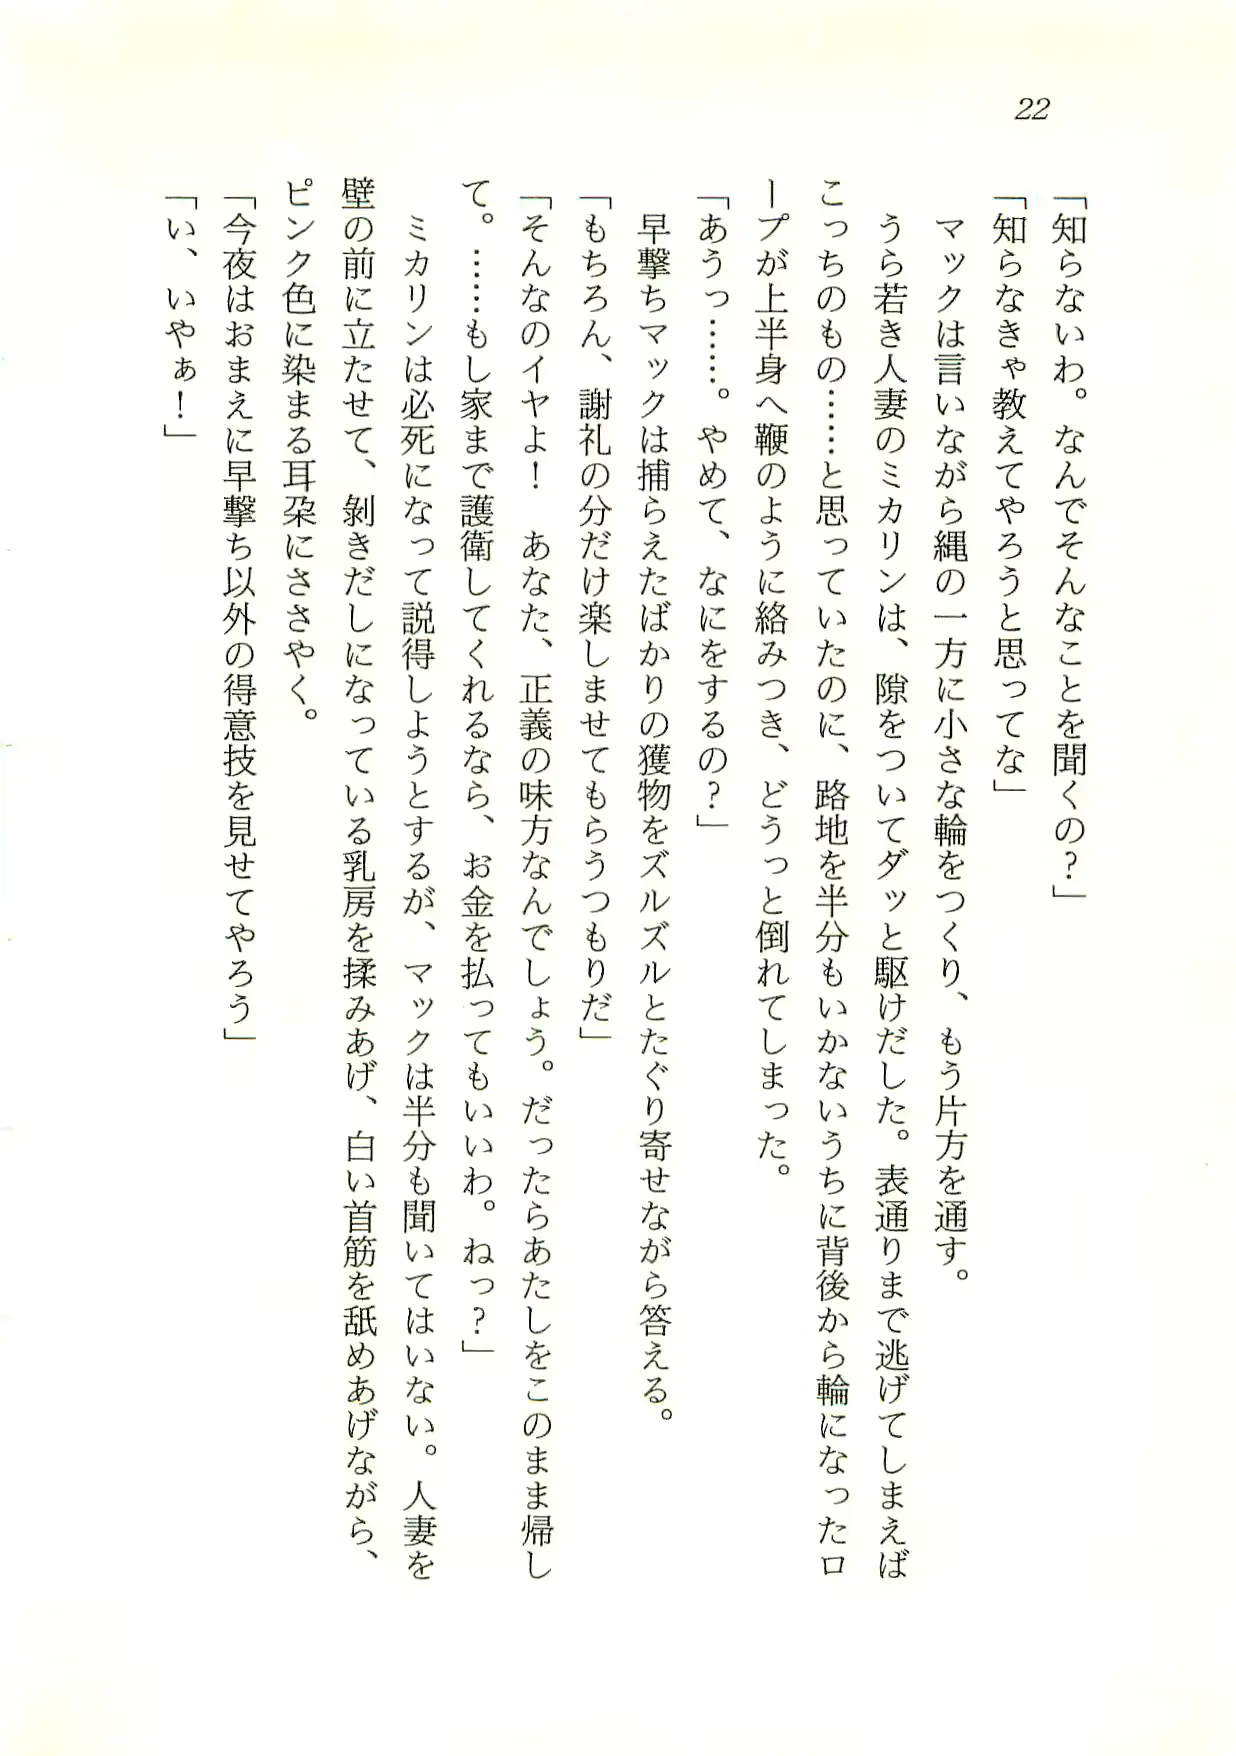 22
「知らないわ。なんでそんなことを聞くの？」
「知らなきゃ教えてやろうと思ってな」
　マックは言いながら縄の一方に小さな輪をつくり、もう片方を通す。
　うら若き人妻のミカリンは、隙をついてダッと駆けだした。表通りまで逃げてしまえば
こっちのもの……と思っていたのに、路地を半分もいかないうちに背後から輪になったロ
ープが上半身へ鞭のように絡みつき、どうっと倒れてしまった。
「あうっ……。やめて、なにをするの？」
　早撃ちマックは捕らえたばかりの獲物をズルズルとたぐり寄せながら答える。
「もちろん、謝礼の分だけ楽しませてもらうつもりだ」
「そんなのイヤよ！　あなた、正義の味方なんでしょう。だったらあたしをこのまま帰し
て。……もし家まで護衛してくれるなら、お金を払ってもいいわ。ねっ？」
　ミカリンは必死になって説得しようとするが、マックは半分も聞いてはいない。人妻を
壁の前に立たせて、剝きだしになっている乳房を揉みあげ、白い首筋を舐めあげながら、
ピンク色に染まる耳朶にささやく。
「今夜はおまえに早撃ち以外の得意技を見せてやろう」
「い、いやぁ！」